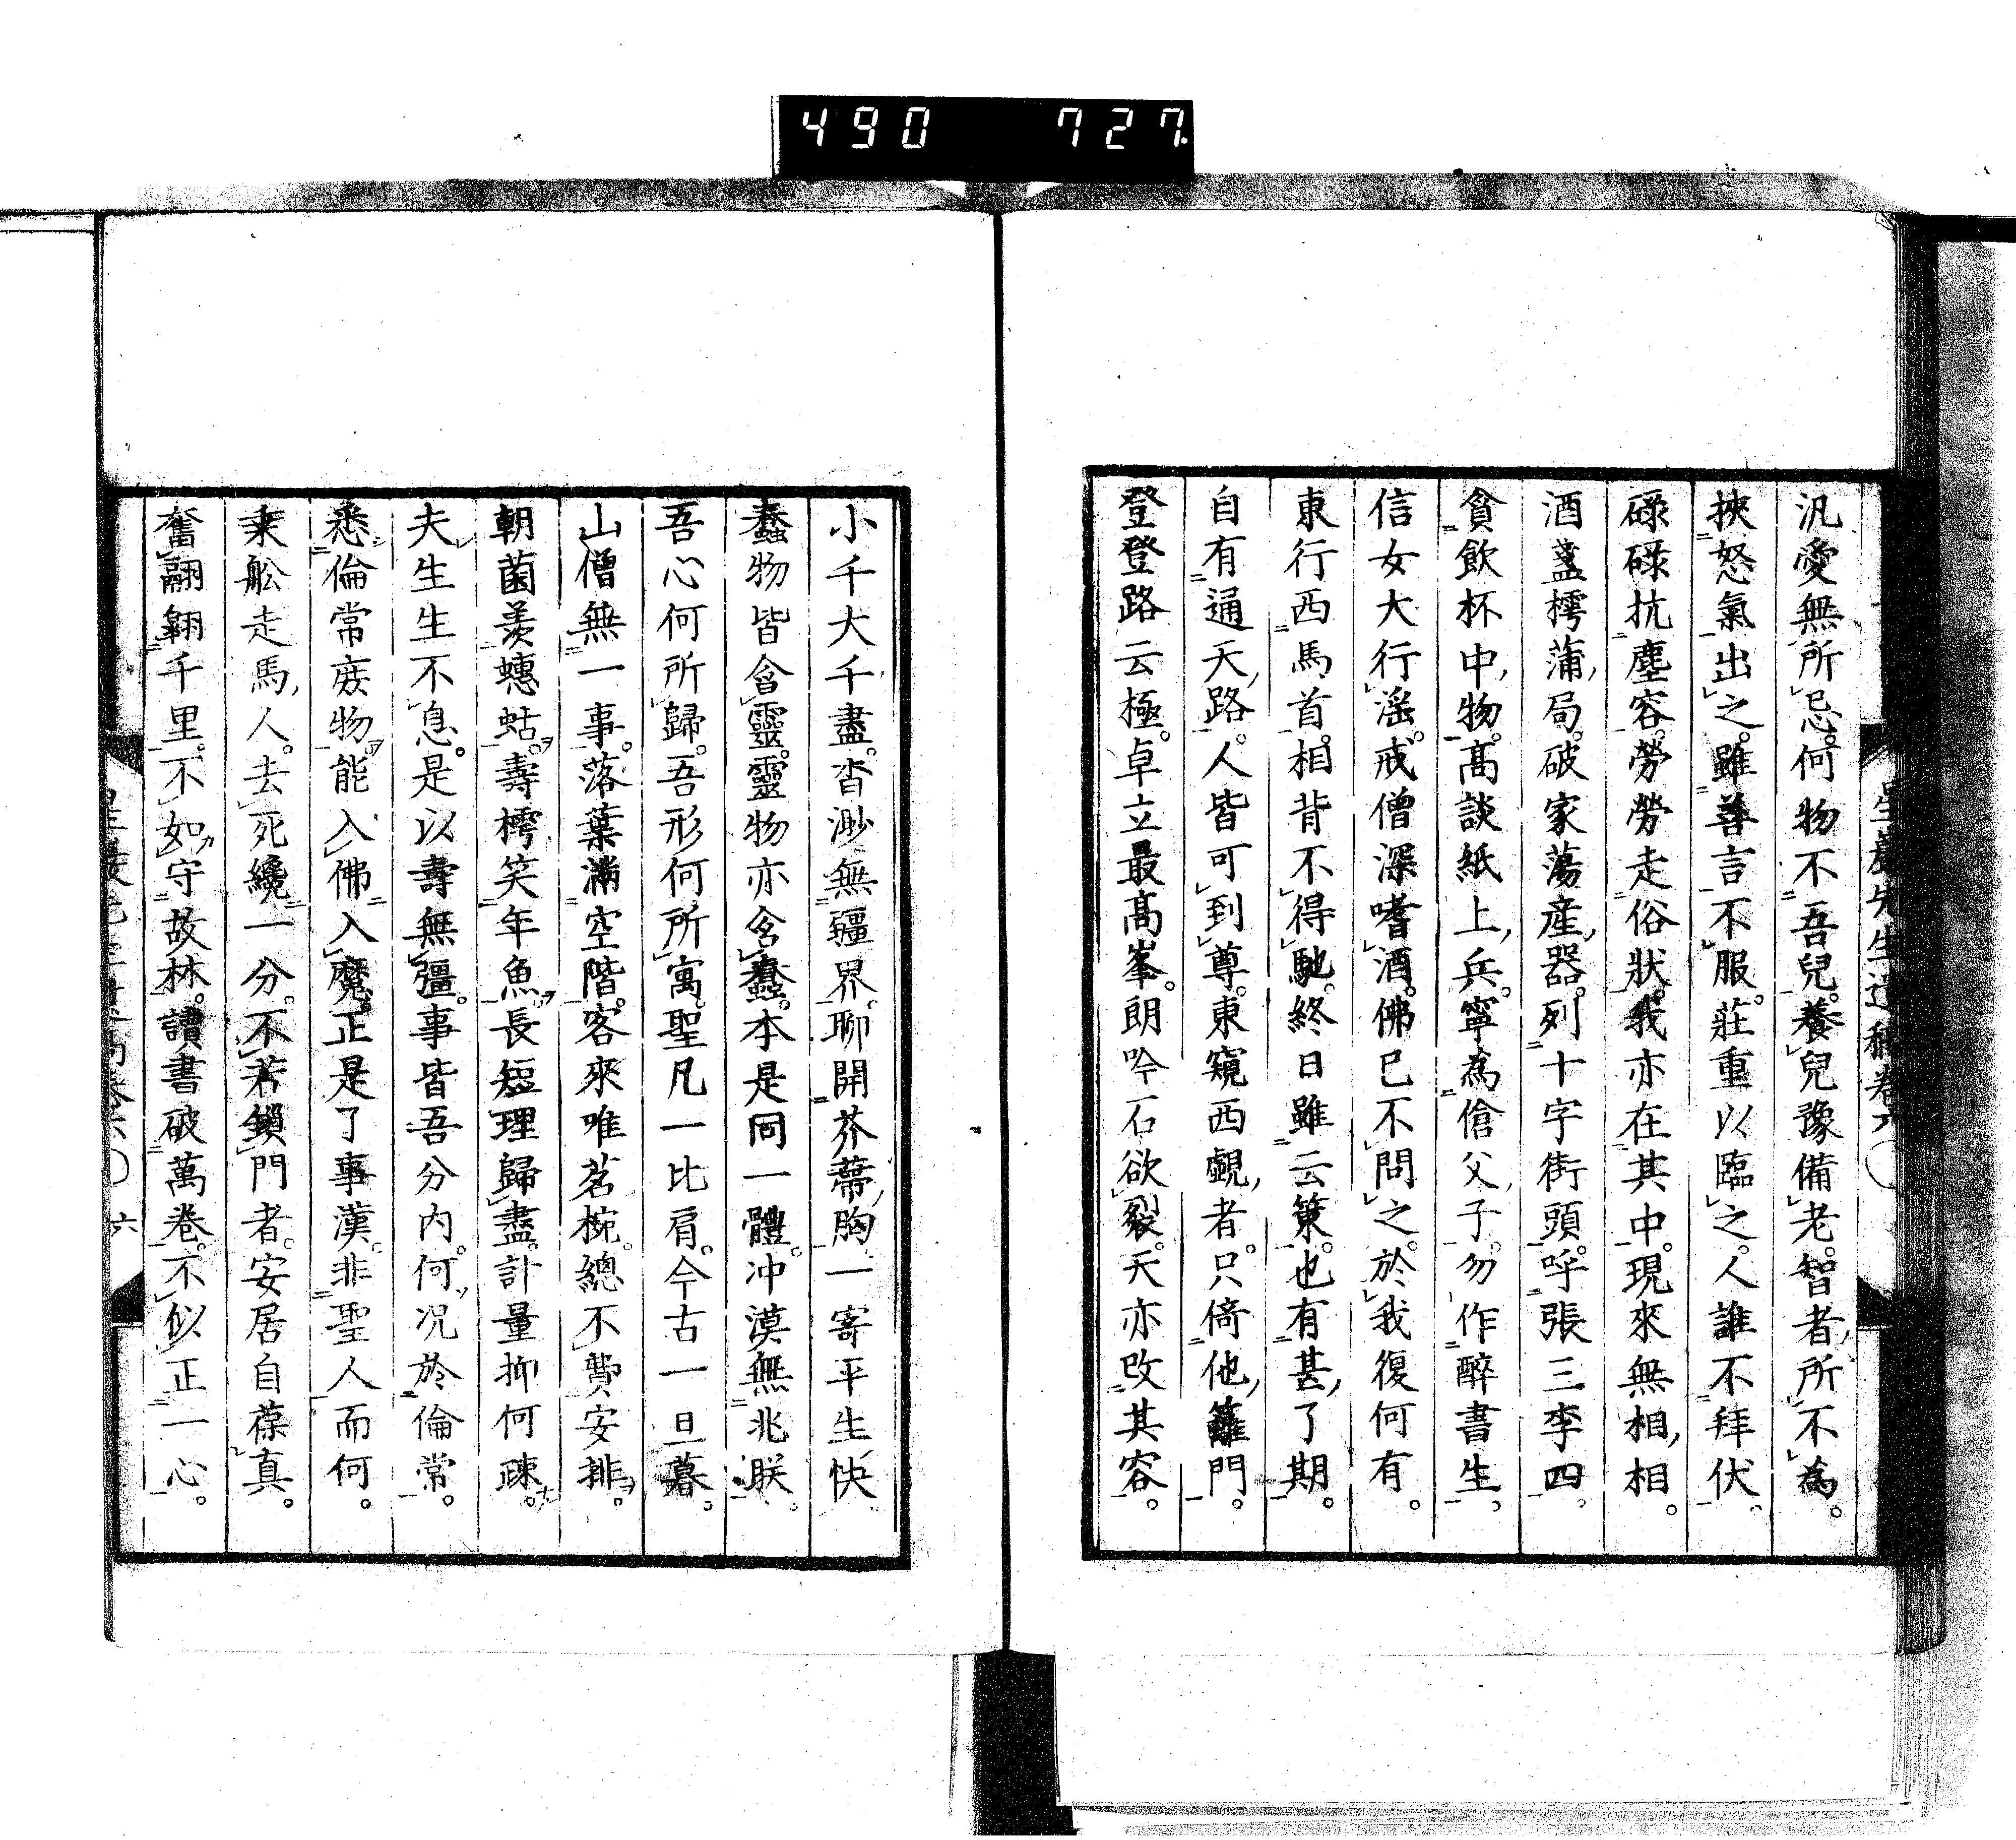 490 727.
星巖先生遺稿卷六〇
汎愛無所忌。何物不吾兒。養兒豫備老。智者所不為。
挾怒氣出之。雖善言不服。莊重以臨之。人誰不拜伏。
碌碌抗塵容。勞勞走俗狀。我亦在其中。現來無相相。
酒盞樗蒲局。破家蕩産器。列十字街頭。呼張三李四。
貪飲杯中物。高談紙上兵。寧為傖父子。勿作醉書生。
信女大行淫。戒僧深嗜酒。佛已不問之。於我復何有。
東行西馬首。相背不得馳。終日雖云策。也有甚了期。
自有通天路。人皆可到尊。東窺西覷者。只倚他籬門。
登登路云極。卓立最高峯。朗吟石欲裂。天亦改其容。
小千大千盡。杳渺無疆界。聊開芥蔕胸。一寄平生快。
蠢物皆含靈。靈物亦含蠢。本是同一體。冲漠無兆朕。
吾心何所歸。吾形何所寓。聖凡一比肩。今古一旦暮。
山僧無一事。落葉滿空階。客來唯茗椀。總不費安排。
朝菌羨蟪蛄。壽樗笑年魚。長短理歸盡。計量抑何疎。
夫生生不息。是以壽無彊。事皆吾分内。何況於倫常。
悉倫常庶物。能入佛入魔。正是了事漢。非聖人而何。
乘舩走馬人。去死纔一分。不若鎖門者。安居自葆真。
奮翮翱千里。不如守故林。讀書破萬卷。不似正一心。
星巖先生遺稿卷六〇 六